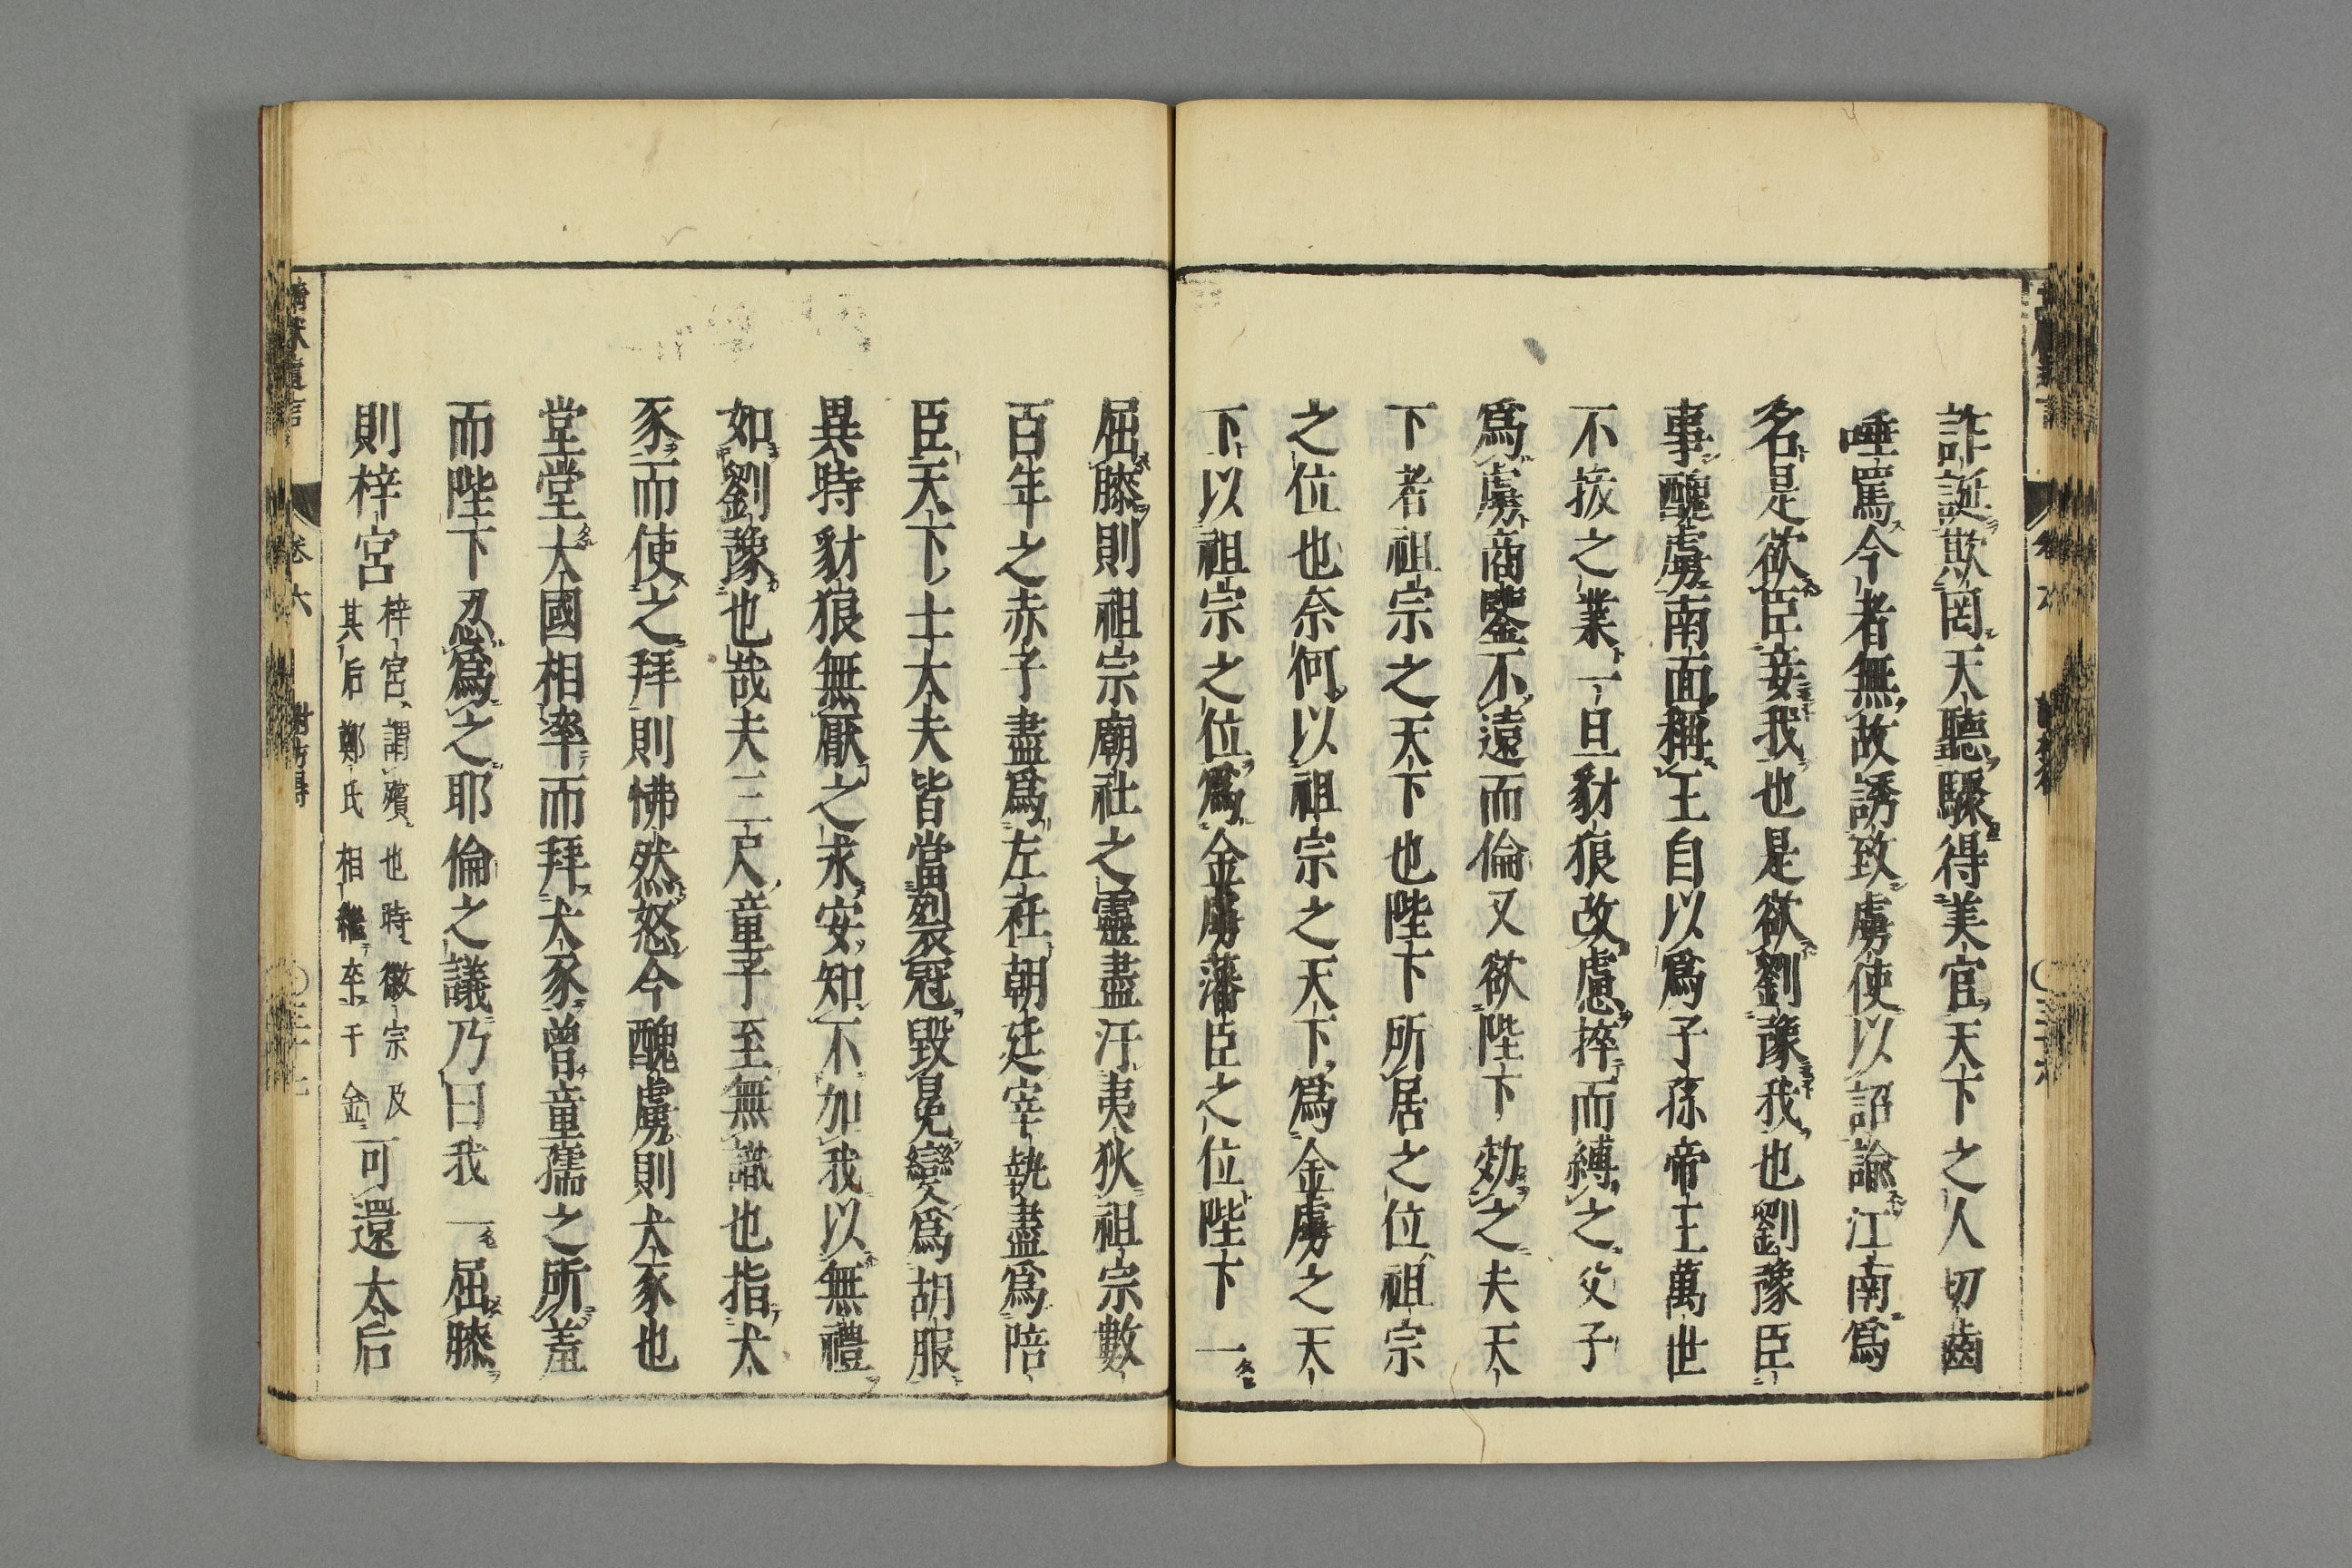 詐誕欺罔天聽驟得美官天下之人切齒
唾罵今者無故誘致虜使以詔諭江南爲
名是欲臣妾我也是欲劉豫我也劉豫臣
事醜虜南面稱王自以爲子孫帝王萬世
不拔之業一旦豺狼改慮捽而縛之父子
爲虜商鑒不遠而倫又欲陛下効之夫天
下者祖宗之天下也陛下所居之位祖宗
之位也奈何以祖宗之天下爲金虜之天
下以祖宗之位爲金虜藩臣之位陛下一
屈膝則祖宗廟社之靈盡汙夷狄祖宗數
百年之赤子盡爲左衽朝廷宰執盡爲陪
臣天下士大夫皆當裂冠毀冕變爲胡服
異時豺狼無厭之求安知不加我以無禮
如劉豫也哉夫三尺童子至無識也指犬
豕而使之拜則怫然怒今醜虜則犬豕也
堂堂大國相率而拜犬豕曾童孺之所羞
而陛下忍爲之耶倫之議乃曰我一屈膝
則梓宮梓宮謂殯也時徽宗及其后鄭氏相繼卒于金可還太后
卷六